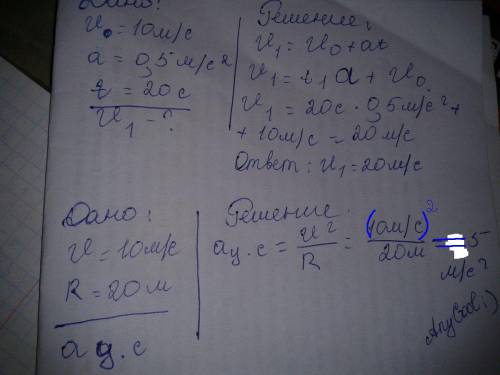 Дано:
υ₀ = 10м/с
a = 0,5 м/с²
t = 20с
υ₁ - ?
Решение:
υ₁ = υ₀ + at
υ₁ = t₁a + υ₀
υ₁ = 20с · 0,5м/с² +
+ 10м/с = 20м/с
Ответ: υ₁ = 20м/с
Дано:
υ = 10м/с
R = 20м
aц.с
Решение:
aц.с = υ²/R = (10м/с)²/20м = 5
м/с²
AnyCool;)